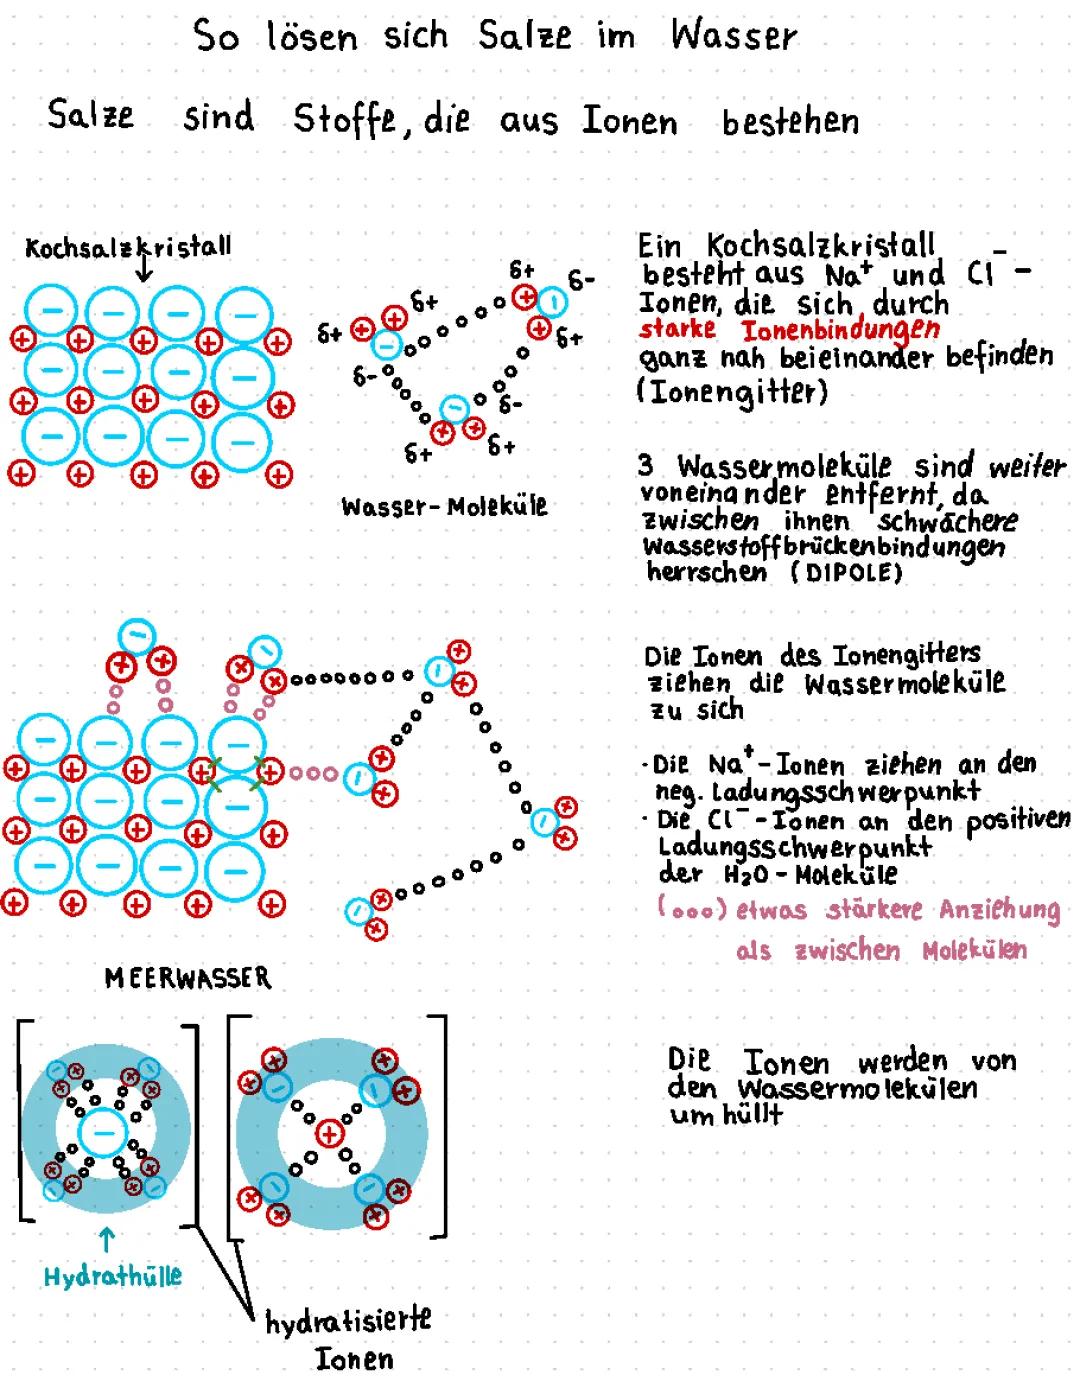 So lösen sich Salze im Wasser
Salze sind Stoffe, die aus Ionen bestehen
Kochsalzkristall
δ+ δ+ δ- δ+ δ- δ+ δ+ δ- δ+
Wasser-Moleküle
Ein Kochsalzkristall
besteht aus Na⁺ und Cl⁻ -
Ionen, die sich durch
starke Ionenbindungen
ganz nah beieinander befinden
(Ionengitter)
3 Wassermoleküle sind weiter
voneinander entfernt, da
zwischen ihnen schwächere
Wasserstoffbrückenbindungen
herrschen (DIPOLE)
Die Ionen des Ionengitters
ziehen die Wassermoleküle
zu sich
·Die Na⁺-Ionen ziehen an den
neg. Ladungsschwerpunkt
· Die Cl⁻-Ionen an den positiven
Ladungsschwerpunkt
der H₂O-Moleküle
(ooo) etwas stärkere Anziehung
als zwischen Molekülen
MEERWASSER
Die Ionen werden von
den Wassermolekülen
umhüllt
Hydrathülle
hydratisierte
Ionen